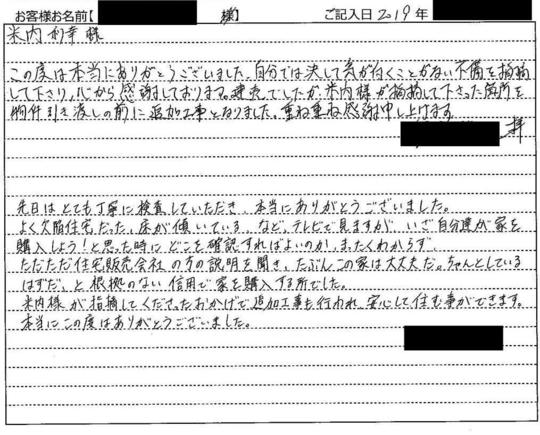 お客様お名前【 様】 ご記入日 2019年
米内 利幸 様
この度は本当にありがとうございました。自分では決して気が付くことがない不備を指摘
して下さり、心から感謝しております。建売でしたが、米内様が指摘して下さった箇所を
物件引き渡しの前に追加工事となりました。重ね重ね感謝申し上げます。
拝
先日はとても丁寧に検査していただき、本当にありがとうございました。
よく欠陥住宅だった、床が傾いている、など、テレビで見ますが、いざ自分達が家を
購入しよう!と思った時にどこを確認すればよいのか、まったくわからず、
ただただ住宅販売会社の方の説明を聞き、たぶんこの家は大丈夫だ。ちゃんとしている
はずだ、と根拠のない信用で家を購入する所でした。
米内様が指摘してくださったおかげで追加工事も行われ、安心して住む事ができます。
本当にこの度はありがとうございました。